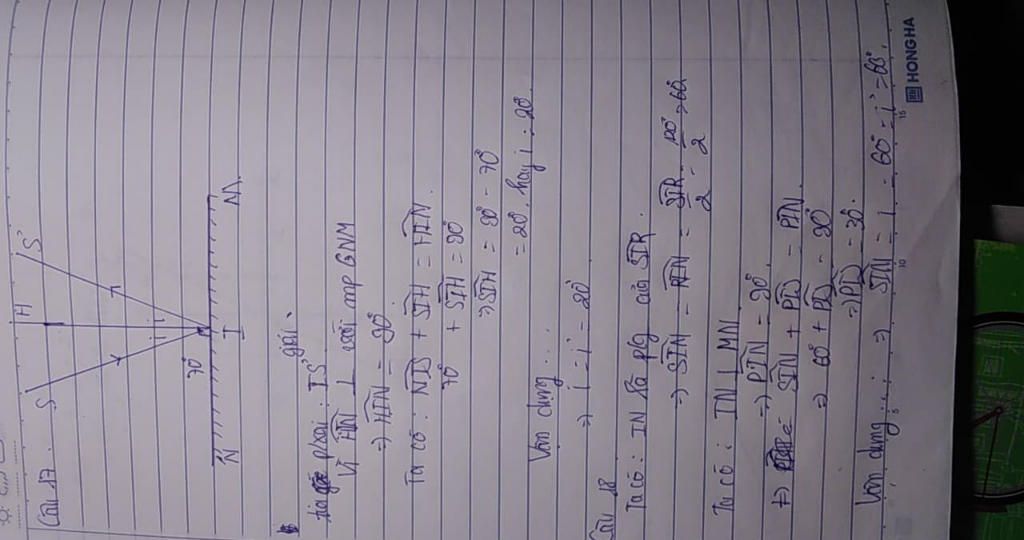 Câu 17.
S H S'
i i'
70°
N I N1
giải
tia phải : IS'
Vì HIN ⊥ với mp GNM
⇒ HIN = 90°
Ta có : NIS + SIH = HIN.
70° + SIH = 90°
⇒ SIH = 90° - 70°
= 20°. hay i = 20°.
Vận dụng...
⇒ i = i' = 20°
Câu 18
Ta có : IN là p/g của SIR.
⇒ SIN = RIN = SIR/2 = 120°/2 = 60°
Ta có : IN ⊥ MN
⇒ PIN = 90°.
⇒ SIN + PIS = PIN
⇒ 60° + PIS = 90°
⇒ PIS = 30°.
Vận dụng... ⇒ SIN = i = 60° = i' = 60°.
5 10 15
HONG HA